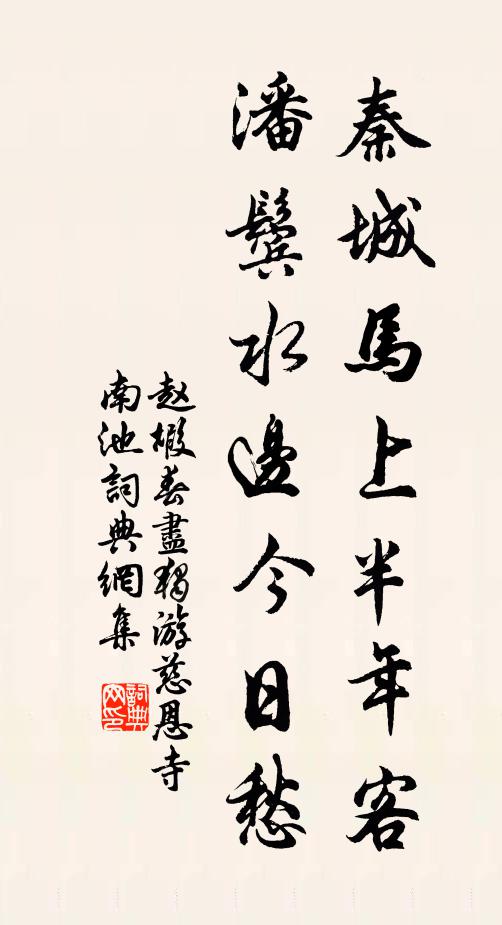 秦城馬上半年客
潘鬢水邊今日愁
赵嘏春盡獨游慈恩寺
南池詞典網集
詞典
网印